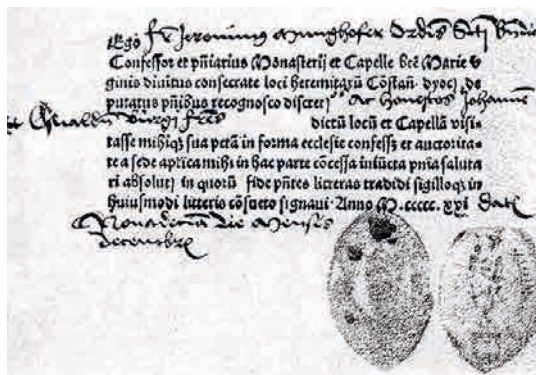 Ego fr Jeronimus Munghofer Ordis Scti Bndic
Confessor et pñiarius Monasterij et Capelle bte Marie v
ginis divinitus consecrate loci heremitarũ Cõstañ. dyoc̃. de
putatus pñibus recognosco discret Ac honestos Johannẽ
et Oswaldũ fr̃es dictũ locũ et Capellã visi-
tasse mihiq; sua pctã in forma ecclesie confessi et auctorita-
te a sede aplica mihi in hac parte cõcessa iniũcta pñia saluta
ri absoluti in quorũ fide pñtes litteras tradidi sigilloq; in
huiusmodi litteris cõsueto signavi. Anno M.ccccc.xxi Dat
Nona decima die Mensis
decembris